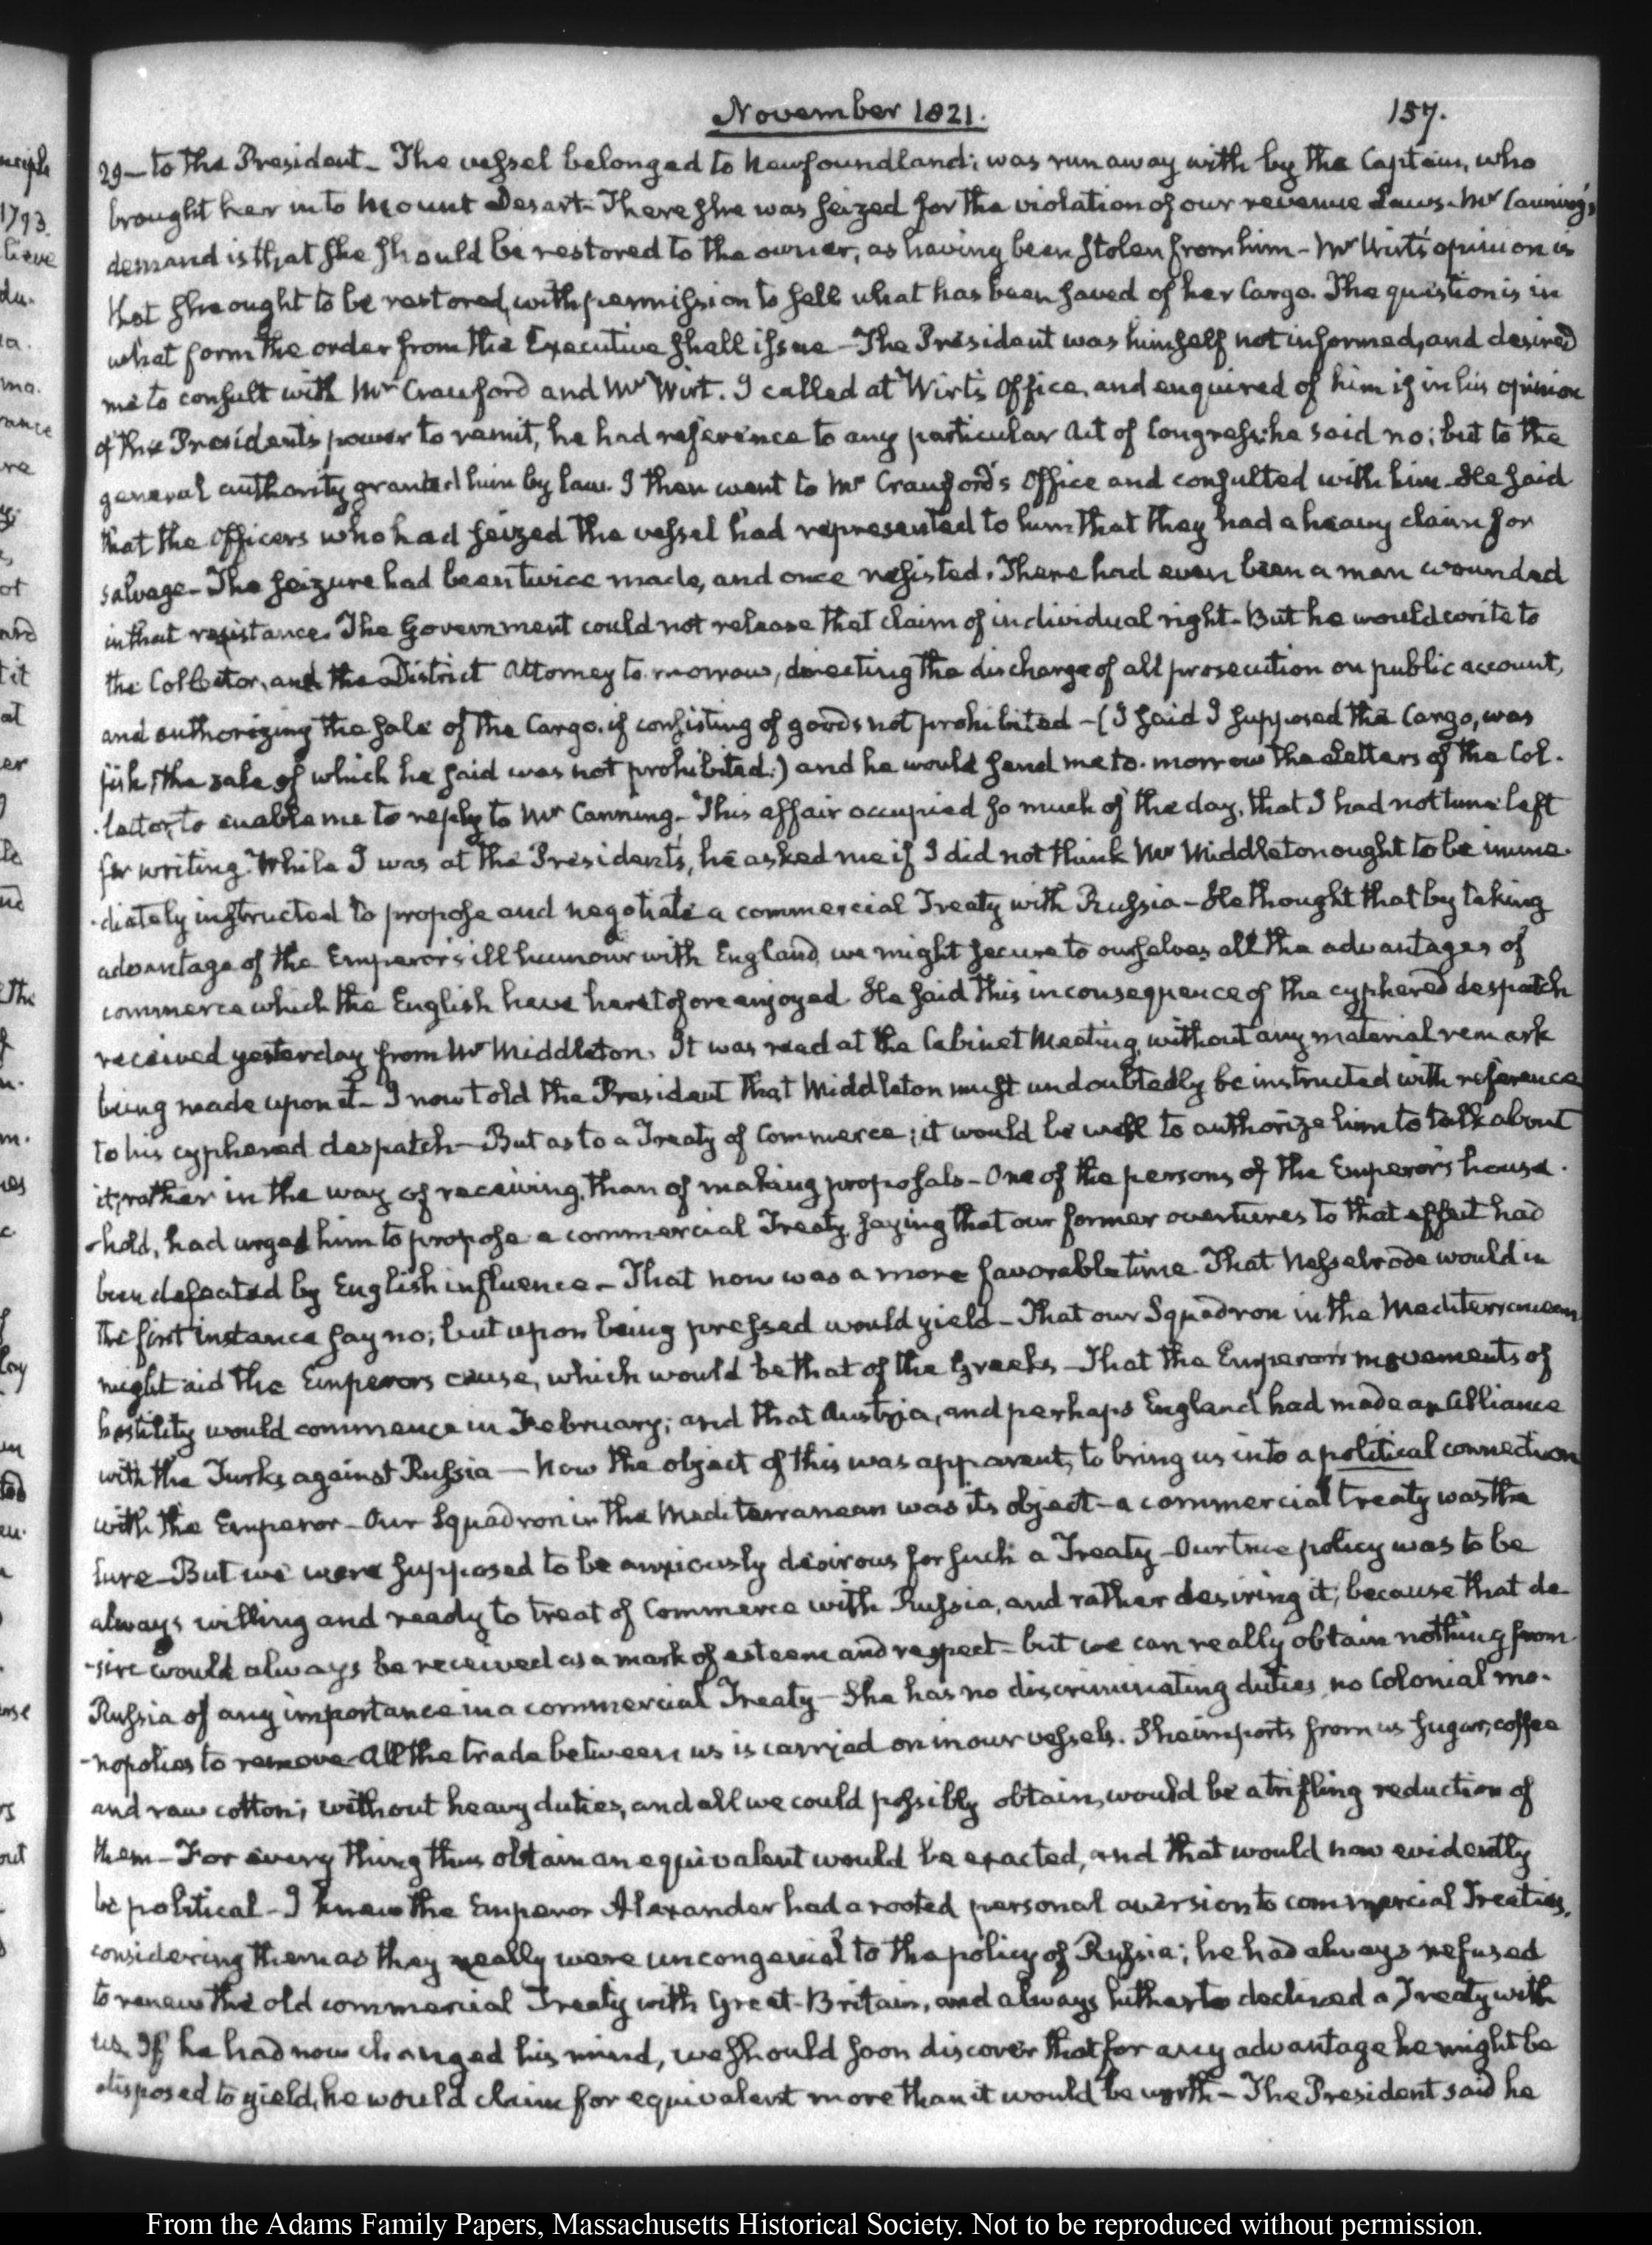 November 1821.
157.
29 — to the President — The vessel belonged to Newfoundland; was run away with by the Captain, who
brought her into Mount Desart — There she was seized for the violation of our revenue Laws — Mr Canning's
demand is that she should be restored to the owner, as having been stolen from him — Mr Wirt's opinion is
that she ought to be restored, with permission to sell what has been saved of her Cargo. The question is in
what form the order from the Executive shall issue — The President was himself not informed, and desired
me to consult with Mr Crawford and Mr Wirt. I called at Wirt's Office, and enquired of him if in his opinion
of the President's power to remit, he had reference to any particular Act of Congress: he said no; but to the
general authority granted him by law. I then went to Mr Crawford's Office and consulted with him — He said
that the Officers who had seized the vessel had represented to him that they had a heavy claim for
salvage — The seizure had been twice made, and once resisted. There had even been a man wounded
in that resistance. The Government could not release that claim of individual right — But he would write to
the Collector, and the District Attorney to-morrow, directing the discharge of all prosecution on public account,
and authorizing the sale of the Cargo, if consisting of goods not prohibited — (I said I supposed the Cargo, was
fish, the sale of which he said was not prohibited.) and he would send me to-morrow the Letters of the Col-
-lector, to enable me to reply to Mr Canning — This affair occupied so much of the day, that I had not time left
for writing. While I was at the President's, he asked me if I did not think Mr Middleton ought to be imme-
-diately instructed to propose and negotiate a commercial Treaty with Russia — He thought that by taking
advantage of the Emperor's ill humour with England, we might secure to ourselves all the advantages of
commerce which the English have heretofore enjoyed. He said this in consequence of the cyphered despatch
received yesterday from Mr Middleton. It was read at the Cabinet Meeting, without any material remark
being made upon it — I now told the President that Middleton must undoubtedly be instructed with reference
to his cyphered despatch — But as to a Treaty of Commerce; it would be well to authorize him to talk about
it, rather in the way of receiving, than of making proposals — One of the persons of the Emperor's house-
-hold, had urged him to propose a commercial Treaty, saying that our former overtures to that effect had
been defeated by English influence — That now was a more favorable time. That Nesselrode would in
the first instance say no; but upon being pressed would yield — That our Squadron in the Mediterranean
might aid the Emperors cause, which would be that of the Greeks — That the Emperor's movements of
hostility would commence in February; and that Austria, and perhaps England had made an Alliance
with the Turks against Russia — Now the object of this was apparent, to bring us into a political connection
with the Emperor — Our Squadron in the Mediterranean was its object — a commercial treaty was the
lure — But we were supposed to be anxiously desirous for such a Treaty — Our true policy was to be
always willing and ready to treat of Commerce with Russia, and rather desiring it; because that de-
-sire would always be received as a mark of esteem and respect — but we can really obtain nothing from
Russia of any importance in a commercial Treaty — She has no discriminating duties, no Colonial mo-
-nopolies to remove — All the trade between us is carried on in our vessels. She imports from us sugar, coffee
and raw cotton; without heavy duties, and all we could possibly obtain, would be a trifling reduction of
them — For every thing thus obtain an equivalent would be exacted, and that would now evidently
be political — I knew the Emperor Alexander had a rooted personal aversion to commercial Treaties,
considering them as they really were uncongenial to the policy of Russia; he had always refused
to renew the old commercial Treaty with Great-Britain, and always hitherto declined a Treaty with
us. If he had now changed his mind, we should soon discover that for any advantage he might be
disposed to yield, he would claim for equivalent more than it would be worth — The President said he
From the Adams Family Papers, Massachusetts Historical Society. Not to be reproduced without permission.